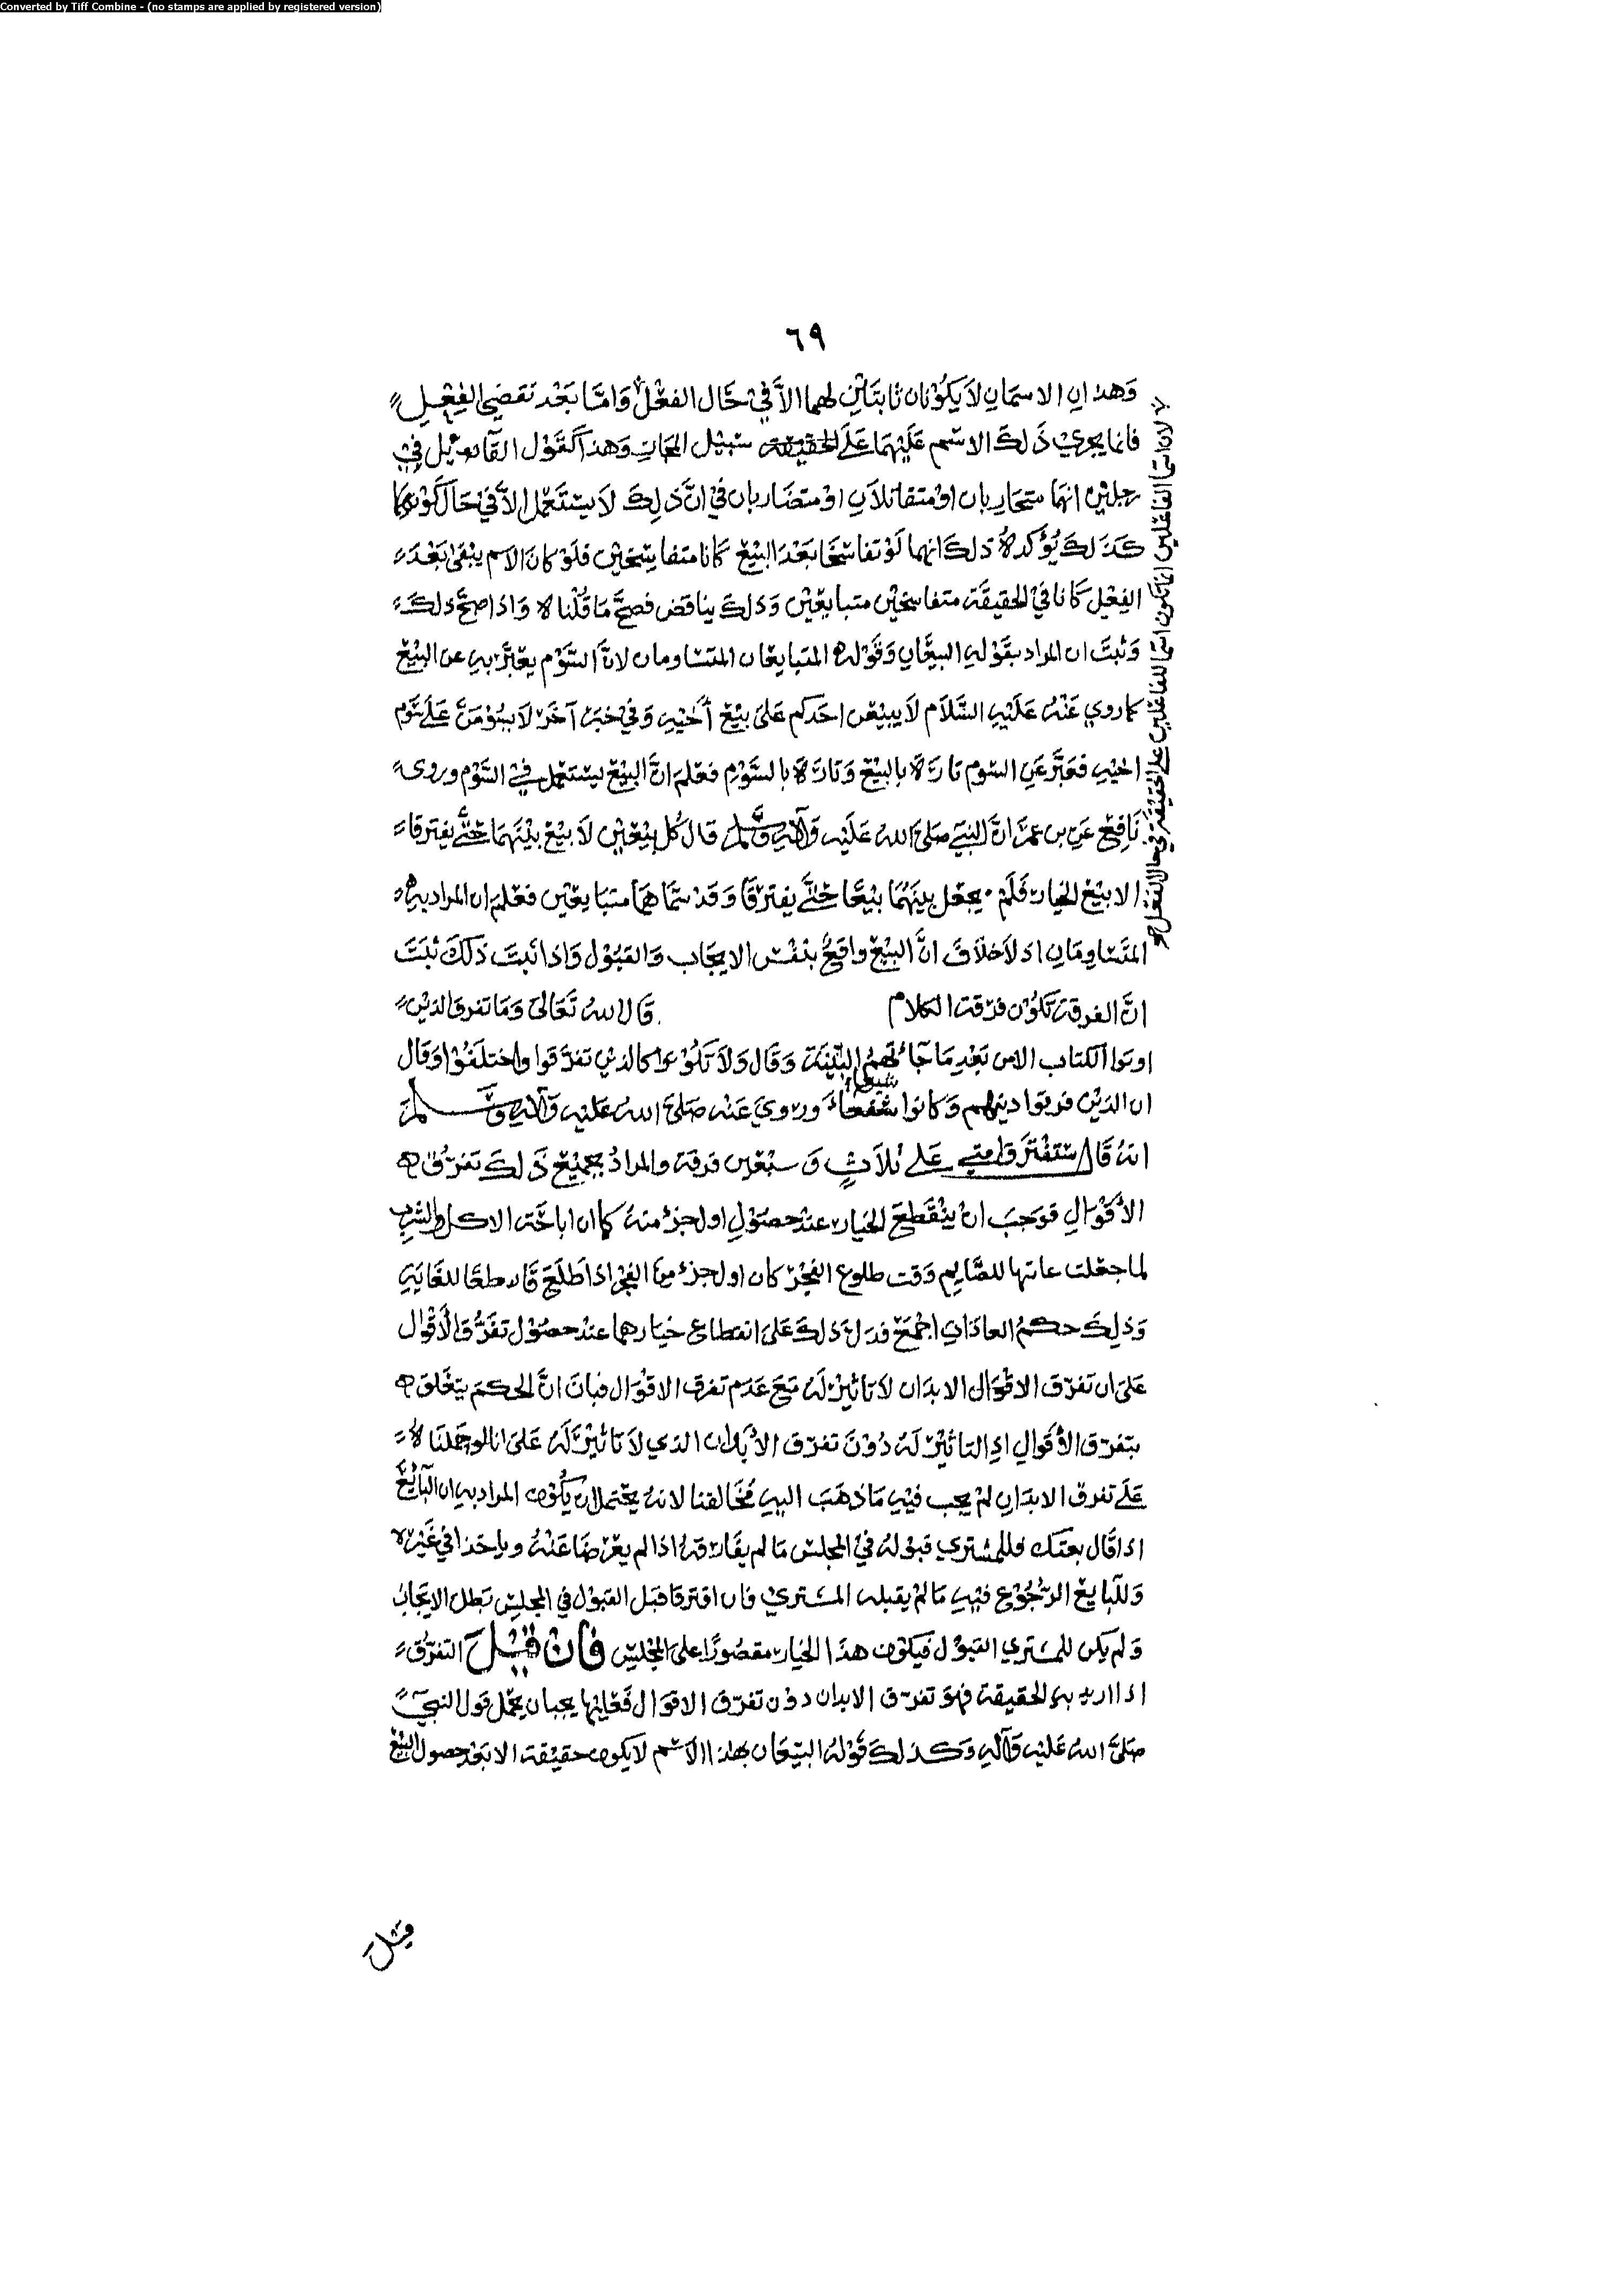 Converted by Tiff Combine - (no stamps are applied by registered version)
٦٩
وَهذانِ الاسمَانِ لاَ يكُوْنان ثابتَيْنِ لهما الاَّ فيْ حَال الفعْلْ وَامّا بَعْد تَقَضِي الفِعْلِ
فانما يجريْ ذَلكَ الاسْم عَليْهمَا عَلَى الحقيقة سَبيْل المجَازِ وَهذا كَقَوْل القَائِل فِيْ
رجلَيْنِ انهمَا متحَاربان اوْ متقاتلاَنِ اوْ متضَاربان فيْ انَّ ذلِكَ لاَ يسْتَعْمل الاَّ فيْ حَال كَوْنهمَا
كذَلكَ يُؤكدهُ ذلكَ انهما لَوْ تفاسَخَا بَعْدَ البَيْعِ كَانا متفاسِخَيْنِ فلَوْ كانَ الاسم يبْقى بَعْدَ
الفِعْلِ كَانا فيْ الحقيقَة متفاسخَيْنِ متبايعَيْنِ وَذلكَ يناقض فصَحَّ مَا قُلْناه وَاذا صحَّ ذلكَ
وَثبَتَ ان المراد بقَوْلهِ البيعَّانِ وَقَوْله المتبايعَان المتسَاومان لانَّ السَّوْم يعَبَّر بهِ عن البَيْعِ
كما رويَ عَنْهُ عَلَيْهِ السَّلاَم لاَ يبيْعَن احَدكم عَلىَ بيْعِ أخيْهِ وَفيْ خبَر آخَر لاَ يسُوْمَنَّ عَلىَ سَوْم
اخيْهِ فعَبَّرَ عَنِ السَوم تارَةً بالبَيْعِ وَتارَةً بالسَّوْمِ فعَلمَ انَّ البَيْعَ يسْتَعْمل فيْ السَّوْم وروى
نَافِع عَنِ بن عمَرَ انَّ النبيَّ صَلىَّ اللهُ عَلَيْهِ وَآلهِ وَسَلَّم قال كُل بيّعَيْن لاَ بيْعَ بيْنَهمَا حَتىَّ يفترقا
الا بَيْعَ الخيَار فَلَمْ يجعَل بينَهُمَا بيْعًا حَتىَّ يفترَقَا وَقدْ سَمَّاهمَا متبَايعَيْن فعَلمَ ان المراد بهِ
المتسَاومَانِ اذ لاَ خلاَفَ انَّ البَيْعَ واقعٌ بنفْسِ الايجَاب وَالقبُوْل وَاذا ثبتَ ذلكَ ثبَتَ
انَّ الفرقة تكوْن فرْقة الكلام قَالَ اللهُ تَعَالىَ وَمَا تفرق الذيْن
اوتوا الكتاب الا من بَعْدِ مَا جَائَتْهُمُ البَيِّنَة وَقَال وَلاَ تَكُوْنوا كالذين تفرَّقوا واختلَفُوْا وَقال
ان الذيْن فرقوا دينهم وَكانوا شيعًا وَرويَ عَنْه صَلىَّ اللهُ عَليْهِ وَآلهِ وَسَلَّمَ
انهُ قَال سَتفْترقُ امتي عَلى ثلاَثٍ وَسبْعيْن فرقة والمرادُ بجَميْعِ ذَلكَ تفرّق
الأقْوَالِ فوَجبَ انْ ينْقَطعَ الخيَار عنْد حصوْلِ اول جزْءٍ منهُ كما ان اباحَة الاكل والشرب
لما جعلت غايتها للصَّايمِ وَقت طلوع الفجْر كان اول جزْءٍ منَ الفجْر اذا طَلَعَ قَاطعًا للغَايَةِ
وَذلِكَ حكمُ الغاياتِ اجْمَعَ فدَل ذلكَ عَلىَ انقطاع خيارهما عنْد حصوْل تفَرُّق الأقْوَال
عَلىَ ان تفرّق الاقْوَال الابدَان لاَ تاثيْرَ لَهُ مَعَ عَدَم تفرق الاقوَال فبانَ انَّ الحكمَ يتعَّلق
بتفرّق الأقْوَالِ اذِ التاثيْرُ لَهُ دُوْنَ تفرّق الأبْدَان الذي لاَ تاثيْرَ لَهُ عَلىَ انا لَو حَملنَاه
عَلى تفرق الابدَانِ لمْ يجب فيْهِ مَا ذهَبَ اليهِ مُخَالفنا لانهُ يحْتمل ان يكُوْن المراد بهِ ان البَائعَ
اذا قَال بعتك فللمشتري قبوْلهُ فيْ المجلس مَا لم يفَارقهُ اذا لم يعْرضَا عَنْهُ وياخذا في غَيْره
وَللبَايع الرّجُوْع فيْهِ مَا لمْ يقبلهِ المشتريْ فان افترقا قبَل القبوْل في المجلس بَطل الايجَاب
وَلم يكن للمشتري القبوْل فيكوْن هذَا الخيَار مقصُورًا على المجْلس فَانْ قِيْلَ التفرّق
اذا اريد بهِ الحقيقة فهوَ تفرّق الابدان دوْن تفرّق الاقوَال فعَلىَ هذا يجب ان يحْمل قول النبيِّ
صَلىَّ اللهُ عَليْهِ وَآلهِ وَكذلكَ قَوْلهُ البَيّعَان بهذا الاسْم لاَ يكون حقيْقة الا بَعْد حصول البَيْعِ
لان اسمَا الفاعلين انما تكون اسمًا للفاعلين على الحقيقة في حال الفعل
قيْلَ